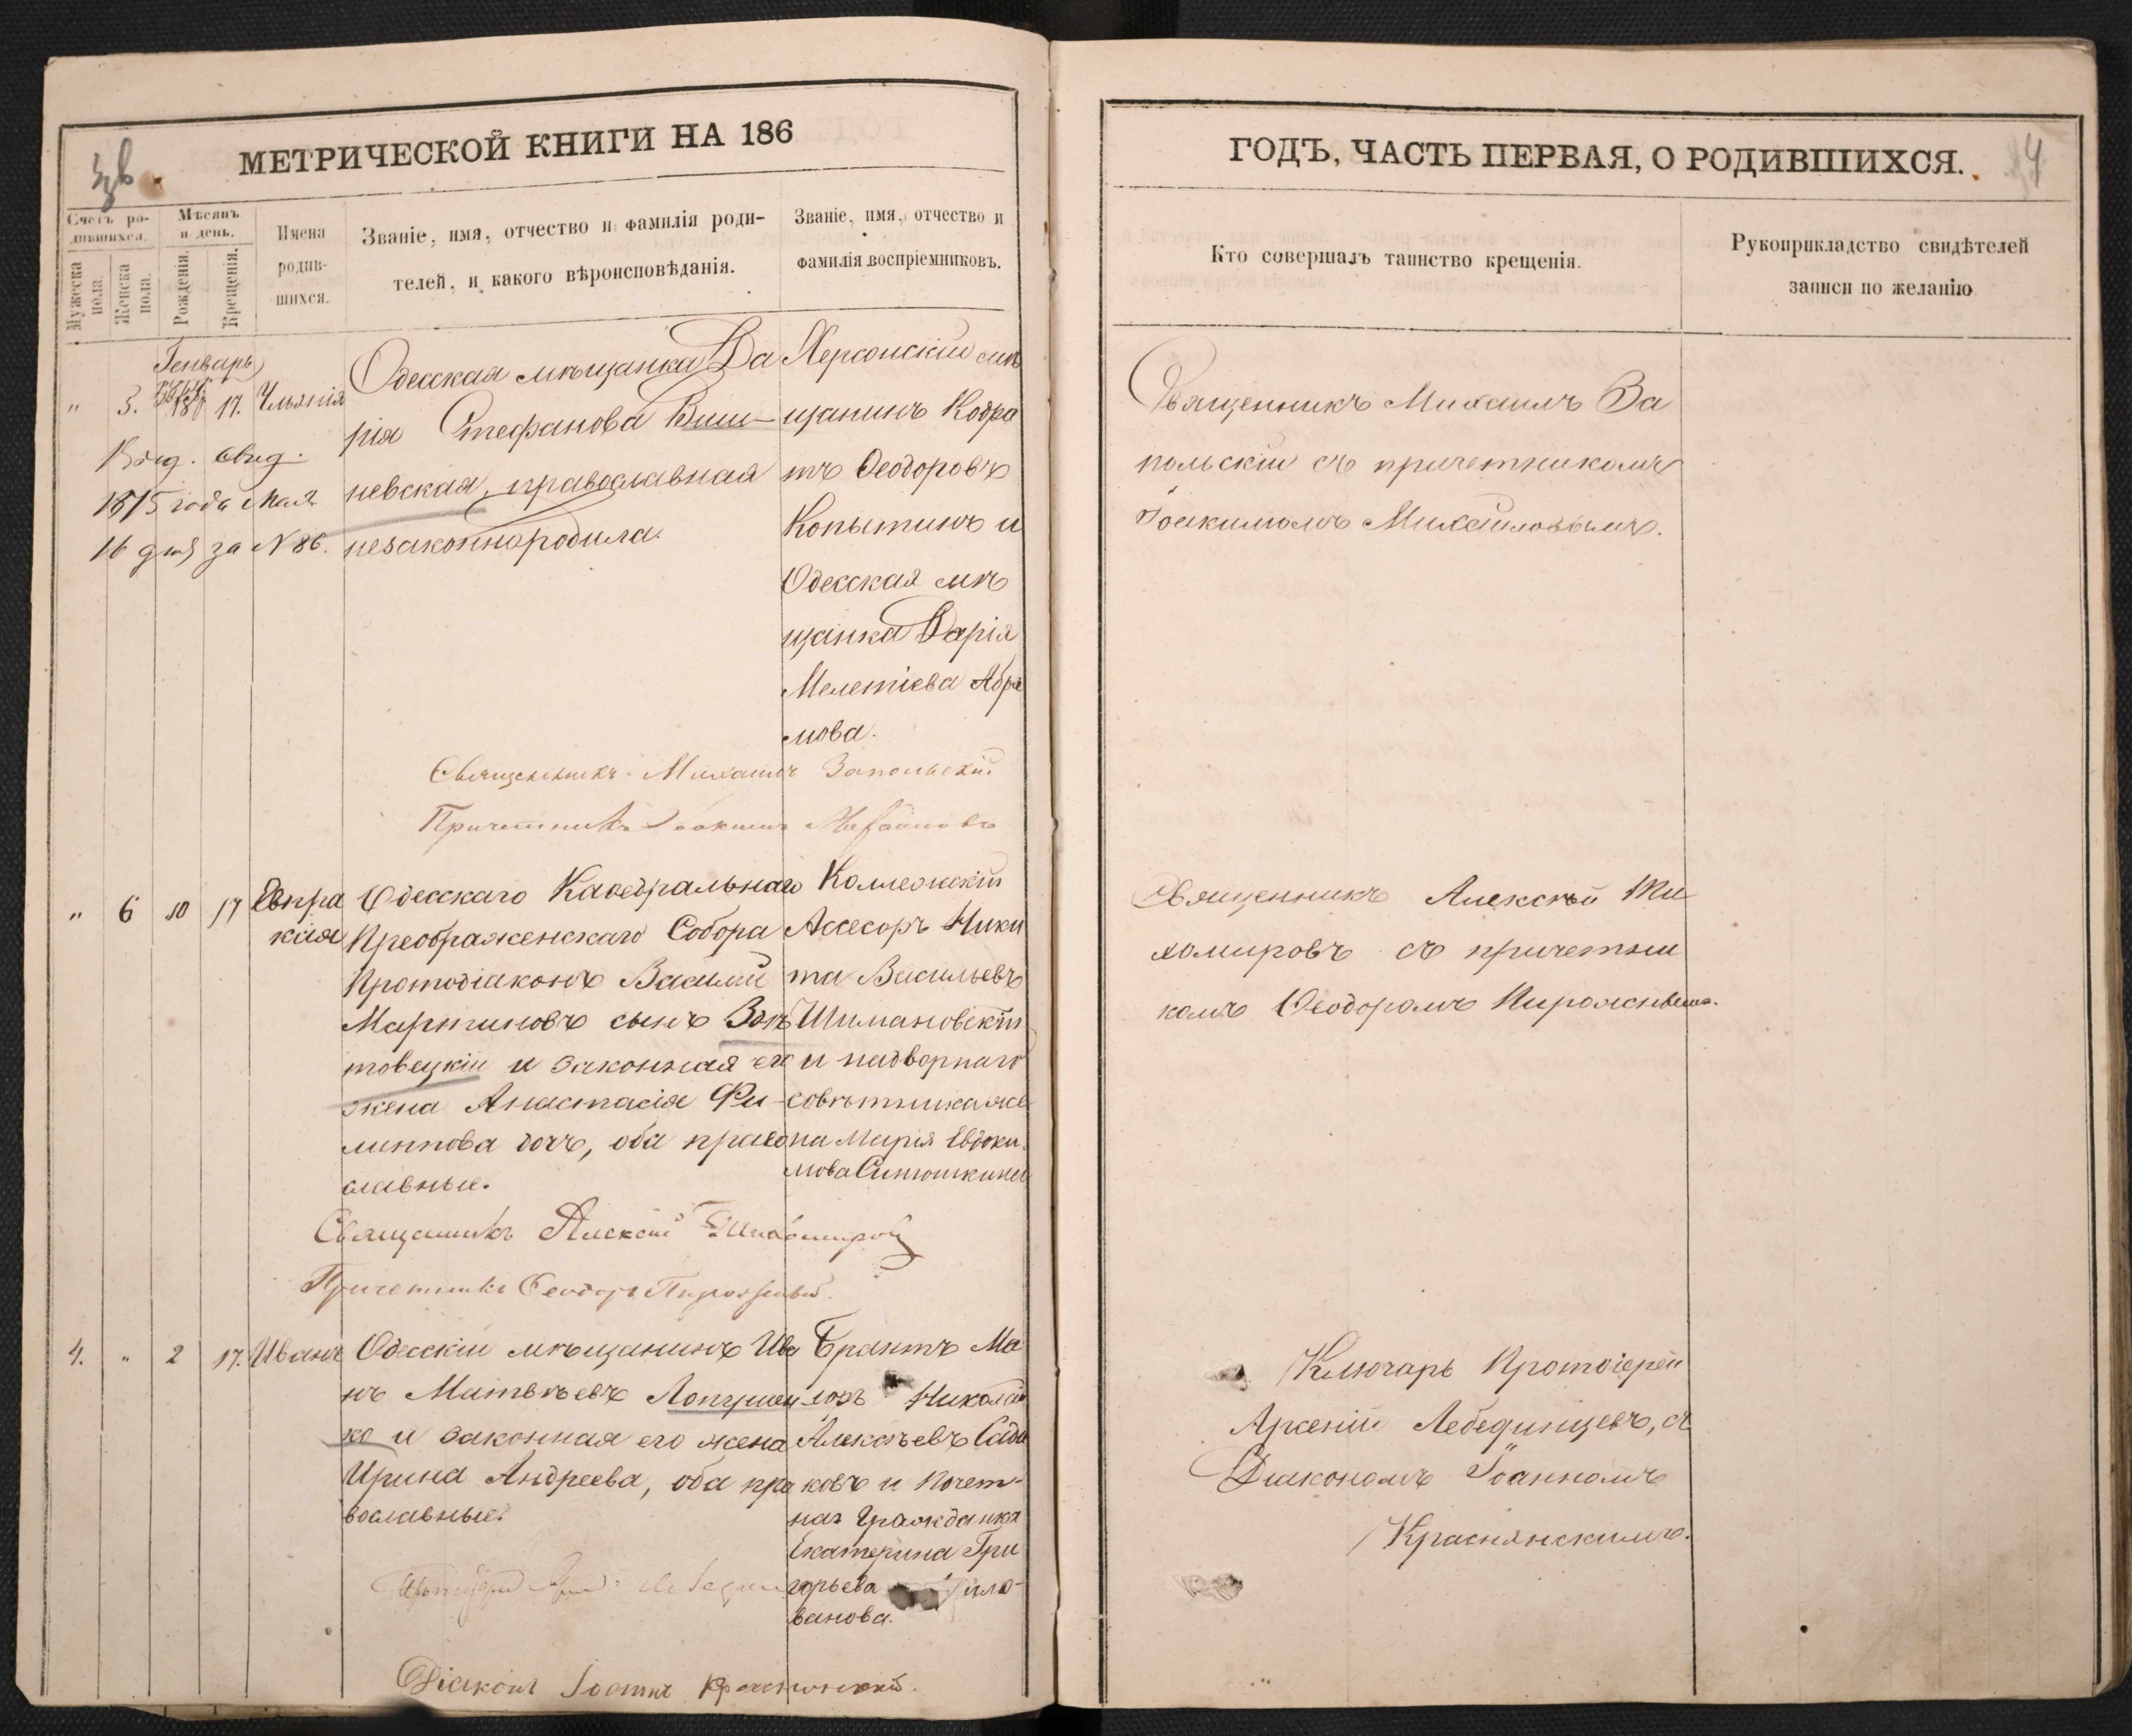 МЕТРИЧЕСКОЙ КНИГИ НА 186
Счетъ ро-
дившихся.
Мѣсяцъ
и день.
Мужеска
пола.
Женска
пола.
Рожденія.
Крещенія.
Имена
родив-
шихся.
Званіе, имя, отчество и фамилія роди-
телей, и какого вѣроисповѣданія.
Званіе, имя, отчество и
фамилія воспріемниковъ.
Генварь
" 5. 17. Ульянія
Выд. свид.
1875 года Мая
16 дня за N 86.
Одесская мѣщанка Да
рія Стефанова Виш-
невская, православная
незаконнародила.
Херсонскій мѣ
щанинъ Кодра
тъ Ѳеодоровъ
Копытинъ и
Одесская мѣ
щанка Дарія
Мелетіева Абра
мова.
Священникъ Михаилъ Запольскій
Причетникъ Іоакимъ Михайловъ
" 6 10 17 Евпра
ксія
Одесскаго Каѳедральнаго
Преображенскаго Собора
Протодіаконъ Василій
Мартиновъ сынъ Золь
товецкій и законная его
жена Анастасія Фи-
липпова дочь, оба право
славные.
Коллежскій
Ассесоръ Ники
та Васильевъ
Шимановскій
и надворнаго
совѣтника же
на Марія Евдоки
мова Синюшкина
Священникъ Алексій Тихомировъ
Причетникъ Ѳеодоръ Пироживый.
4. " 2 17. Иванъ
Одесскій мѣщанинъ Ива
нъ Матвѣевъ Лопушен
ко и законная его жена
Ирина Андреева, оба пра
вославные.
Брантъ Ма
іоръ Николай
Алексѣевъ Сады
ковъ и Почет-
ная Гражданка
Екатерина Гри
горьева
ванова.
Діаконъ Іоаннъ Краснянскій.
ГОДЪ, ЧАСТЬ ПЕРВАЯ, О РОДИВШИХСЯ.
4
Кто совершалъ таинство крещенія.
Рукоприкладство свидѣтелей
записи по желанію
Священникъ Михаилъ За
польскій съ причетникомъ
Іоакимомъ Михайловымъ.
Священникъ Алексѣй Ти
хомировъ съ причетни
комъ Ѳеодоромъ Пироживымъ.
Ключарь Протоіерей
Арсеній Лебединцевъ, съ
Діакономъ Іоанномъ
Краснянскимъ.